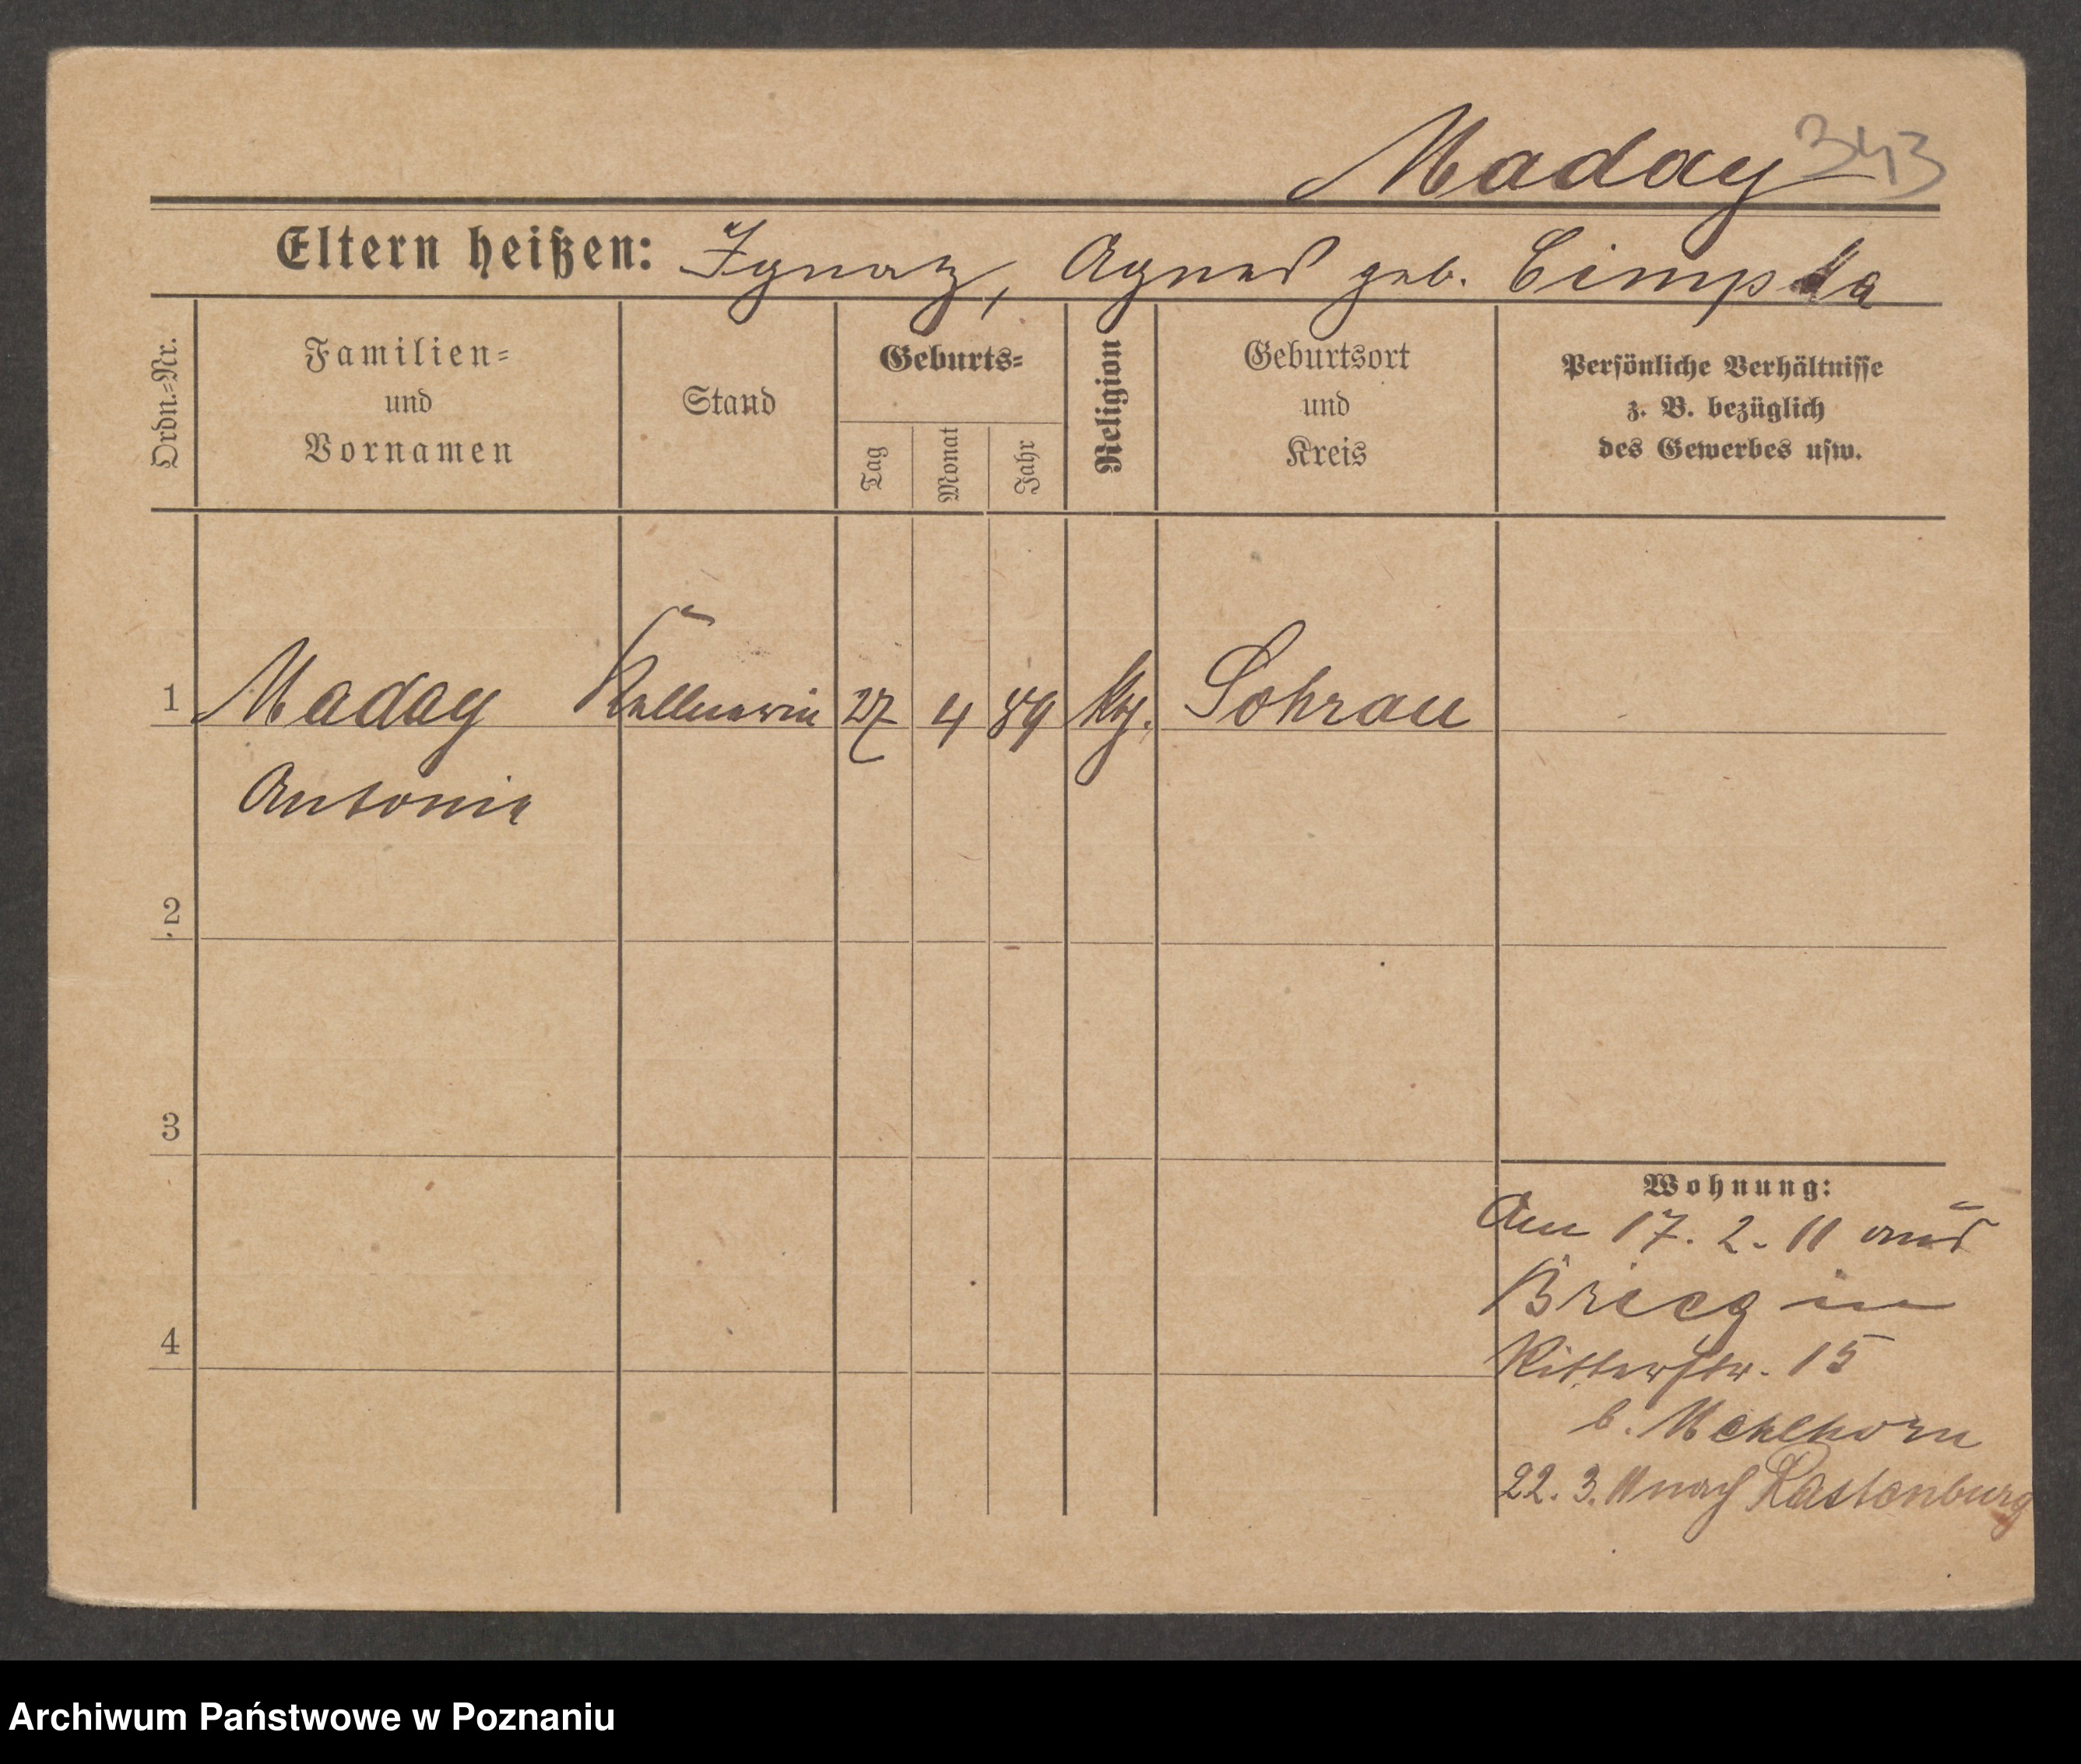 Maday 343
Eltern heißen: Ignatz, Agnes geb. Cimpka
Ordn.=Nr.
Familien=
und
Vornamen
Stand
Geburts=
Tag
Monat
Jahr
Religion
Geburtsort
und
Kreis
Persönliche Verhältnisse
z. B. bezüglich
des Gewerbes usw.
1 Maday Kellnerin 27 4 89 kth. Sohrau
Antonie
2
3
4
Wohnung:
Am 17. 2. 11 aus
Brieg in
Ritterstr. 15
b. Mehlhorn
22. 3. 11 nach Rastenburg
Archiwum Państwowe w Poznaniu